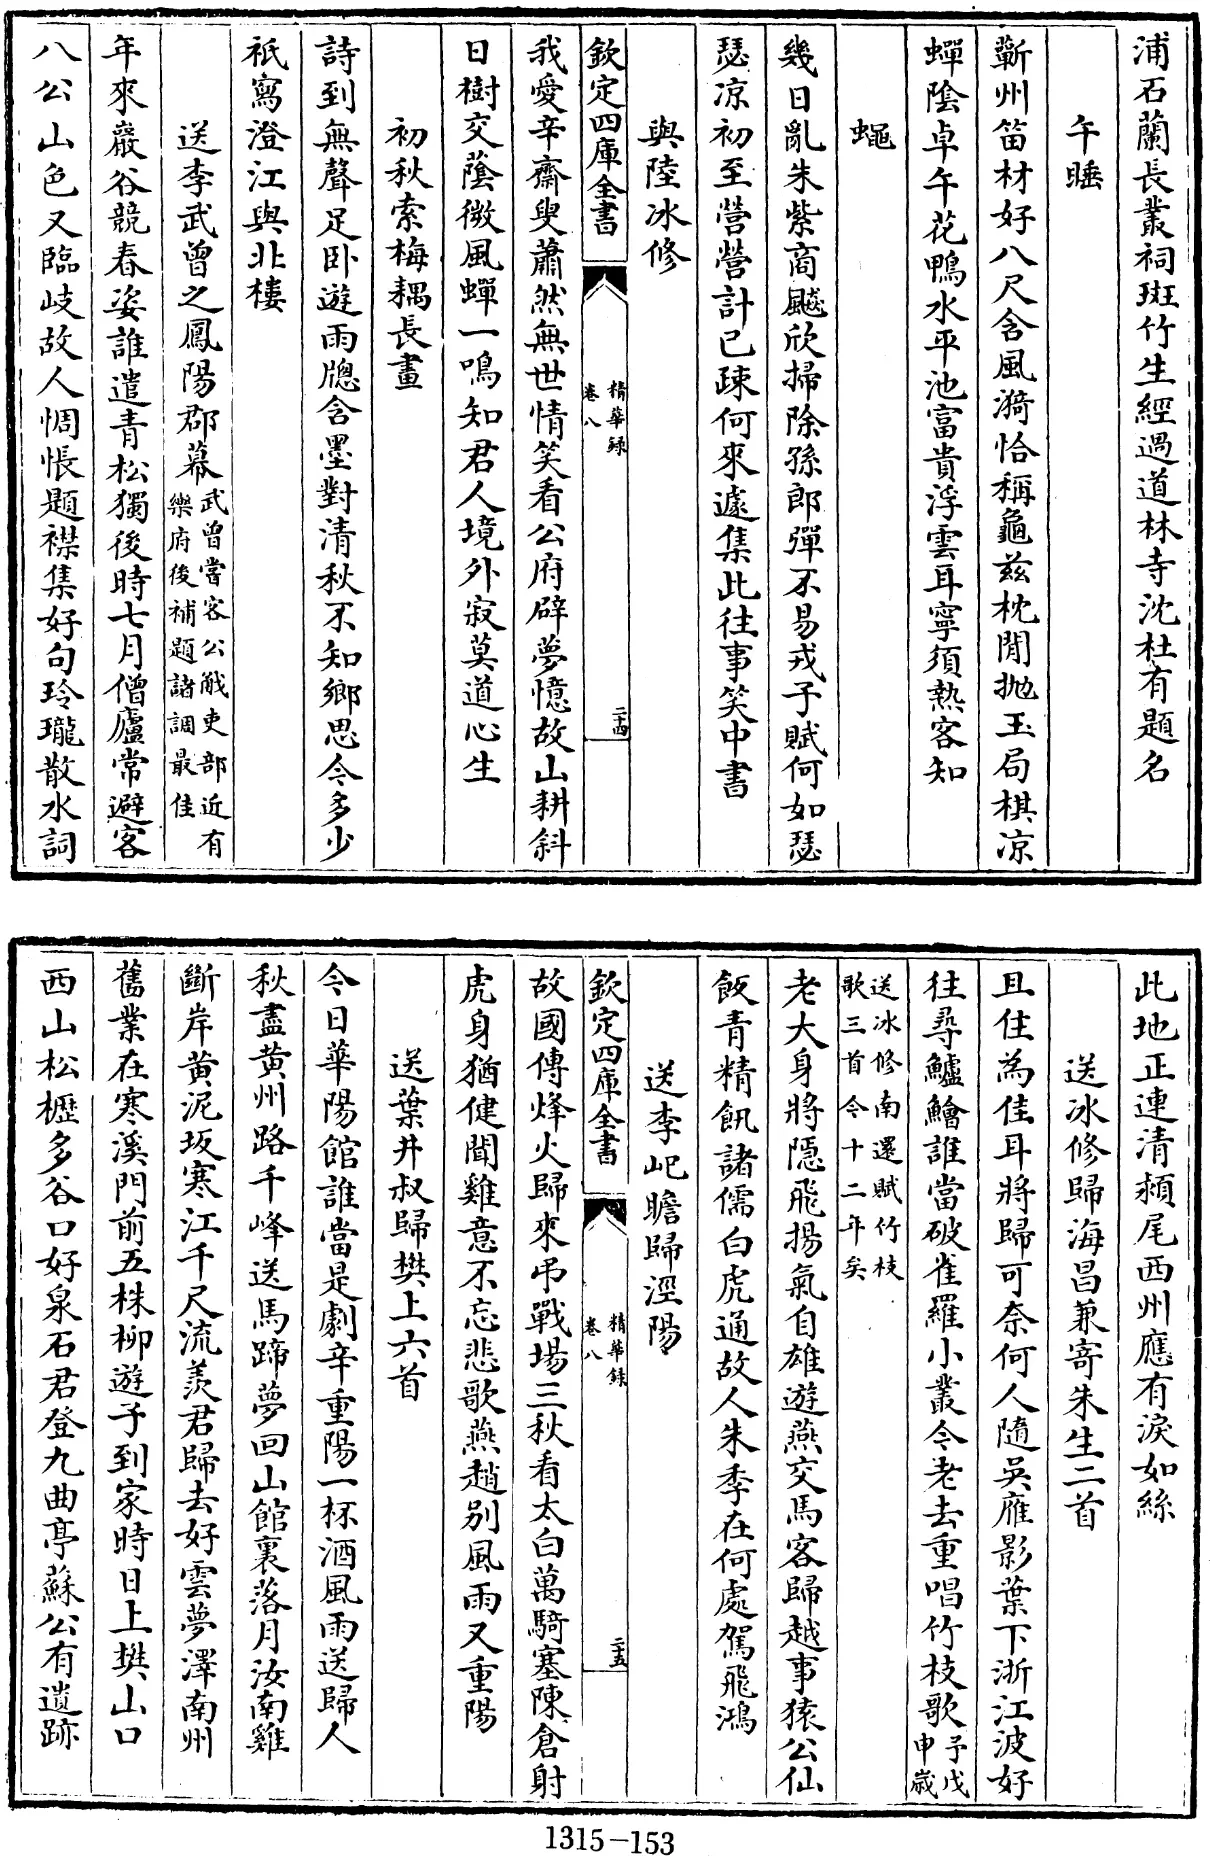 浦石蘭長叢祠斑竹生經過道林寺沈杜有題名
午睡
蘄州笛材好八尺含風漪恰稱龜兹枕閒拋玉局棋凉
蟬陰卓午花鴨水平池富貴浮雲耳寧須熱客知
蠅
幾日亂朱紫商飇欣掃除孫郎彈不易戎子賦何如瑟
瑟凉初至營營計已疎何來遽集此往事笑中書
與陸冰修
欽定四庫全書
精華録
卷八
二十四
我愛辛齋叟蕭然無世情笑看公府辟夢憶故山耕斜
日樹交蔭微風蟬一鳴知君人境外寂莫道心生
初秋索梅耦長畫
詩到無聲足卧遊雨牕含墨對清秋不知鄉思今多少
祇寫澄江與北樓
送李武曾之鳳陽郡幕武曾嘗客公㦷吏部近有
樂府後補題諸調最佳
年來巖谷競春姿誰遣青松獨後時七月僧廬常避客
八公山色又臨岐故人惆悵題襟集好句玲瓏散水詞
此地正連清潁尾西州應有淚如絲
送冰修歸海昌兼寄朱生二首
且住為佳耳將歸可奈何人隨吳雁影葉下浙江波好
往尋鱸鱠誰當破雀羅小叢今老去重唱竹枝歌予戊
申歲
送冰修南還賦竹枝
歌三首今十二年矣
老大身將隱飛揚氣自雄遊燕交馬客歸越事猿公仙
飯青精飢諸儒白虎通故人朱季在何處駕飛鴻
送李屺瞻歸涇陽
欽定四庫全書
精華録
卷八
二十五
故國傳烽火歸來弔戰場三秋看太白萬騎塞陳倉射
虎身猶健聞雞意不忘悲歌燕趙别風雨又重陽
送葉井叔歸樊上六首
今日華陽館誰當是劇辛重陽一杯酒風雨送歸人
秋盡黄州路千峰送馬蹄夢回山館裏落月汝南雞
斷岸黄泥坂寒江千尺流羨君歸去好雲夢澤南州
舊業在寒溪門前五株柳遊子到家時日上樊山口
西山松櫪多谷口好泉石君登九曲亭蘇公有遺跡
1315-153